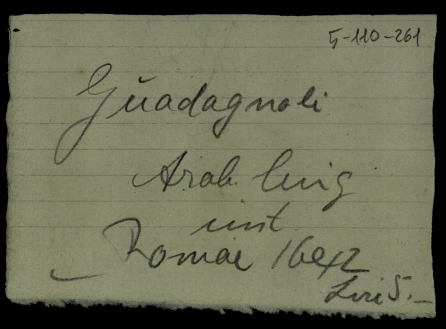 5-110-261
Guadagnoli
Arab. ling
inst.
Romae 1642
Lire 5.—